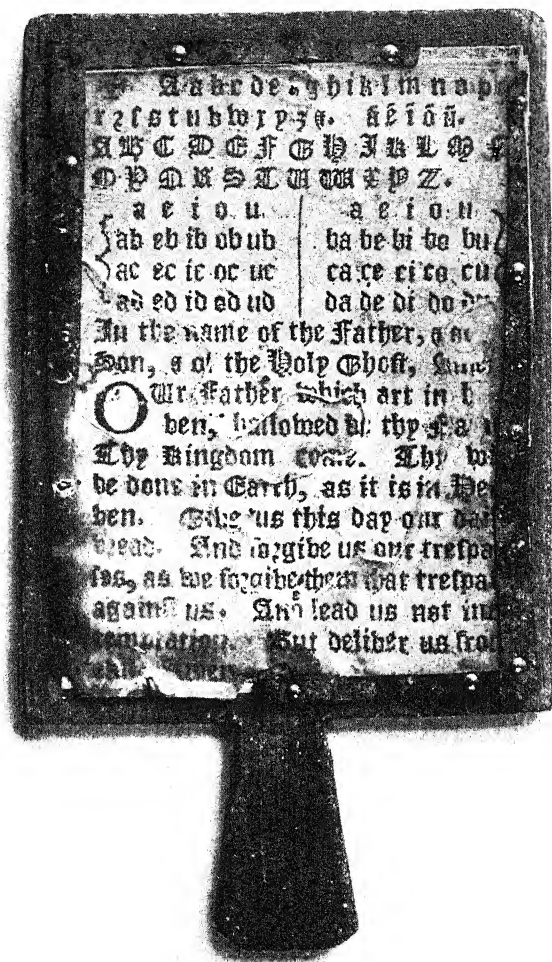 A a b c d e g h i k l m n o p
r ꝛ ſ s t u v w x y z &. ã ẽ ĩ õ ũ.
A B C D E F G H I K L M
O P Q R S T U W X Y Z.
a e i o u a e i o u
ab eb ib ob ub ba be bi bo bu
ac ec ic oc uc ca ce ci co cu
ad ed id od ud da de di do du
In the name of the Father, &
Son, & of the Holy Ghoſt,
OUr Father which art in
ven, hallowed be thy
Thy Kingdom come. Thy
be done in Earth, as it is in Hea
ven. Give us this day our
bread. And forgive us our treſpaſ
ſes, as we forgive them that treſpaſ
againſt us. And lead us not
temptation. But deliver us
evil. Amen.